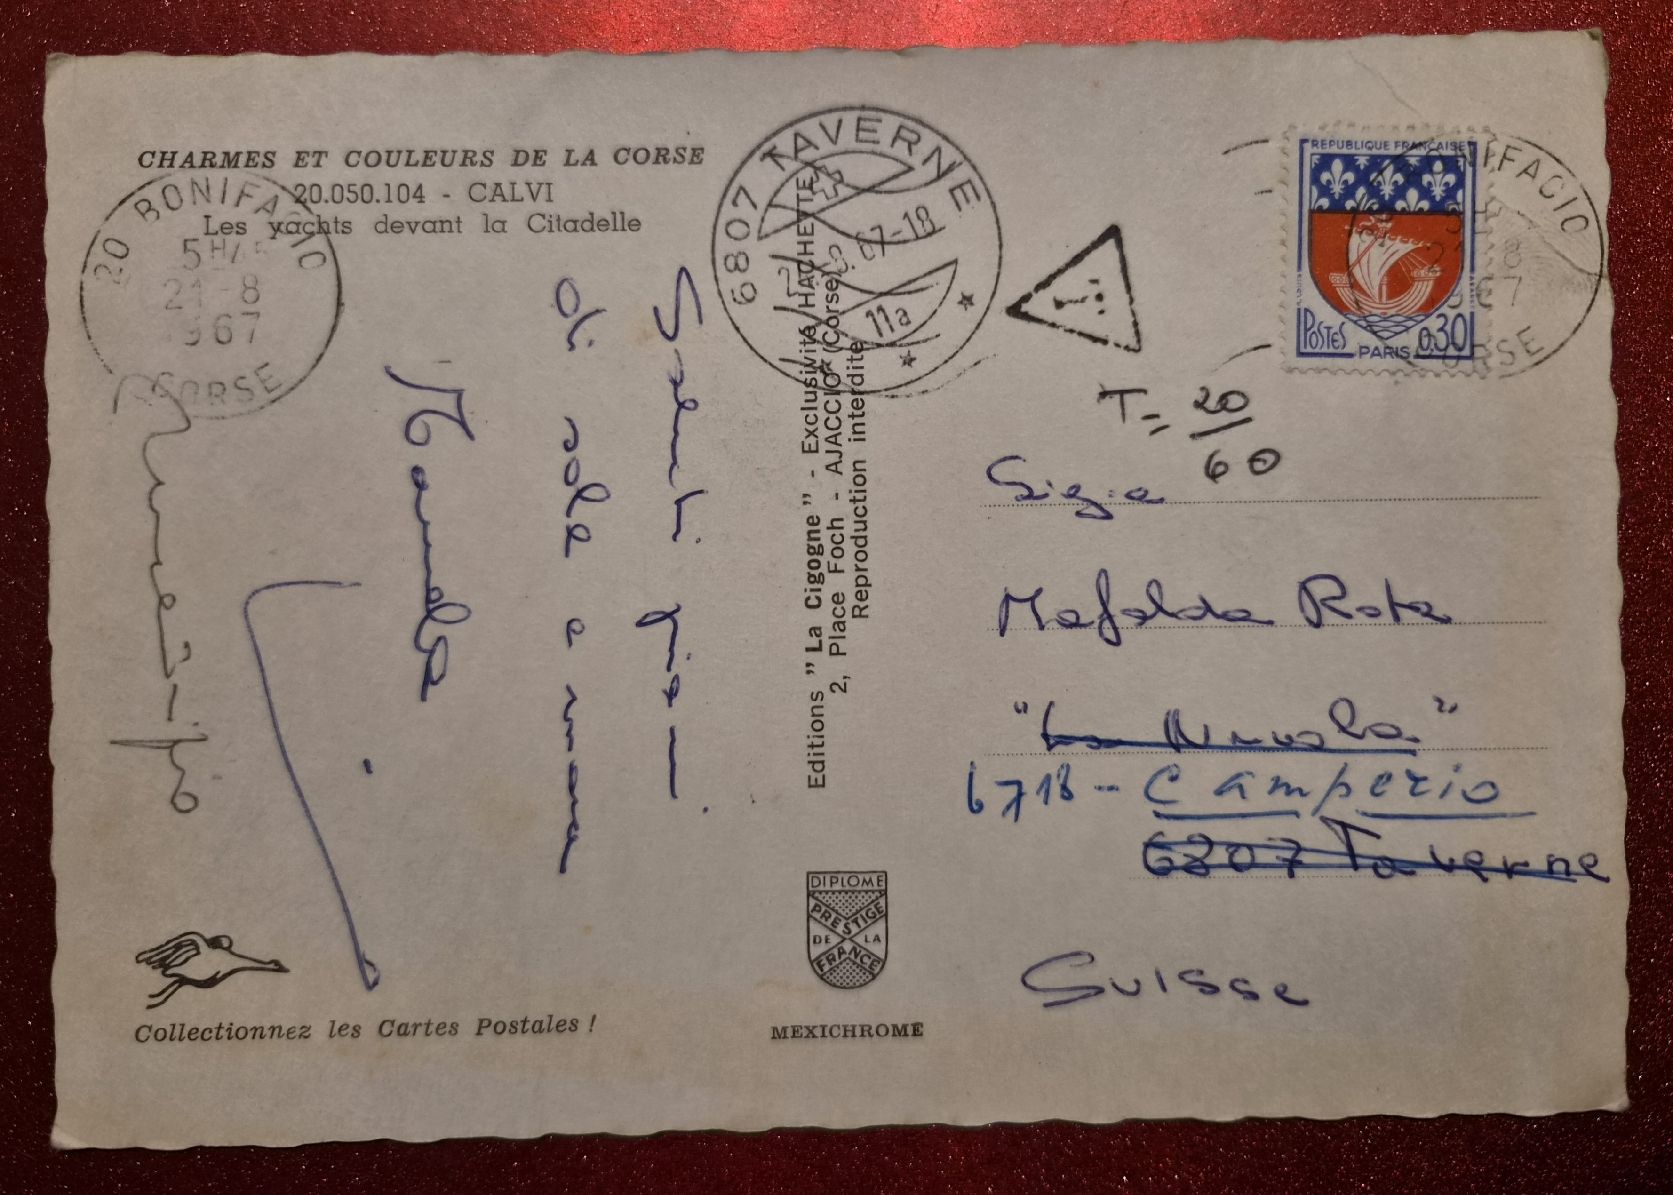 CHARMES ET COULEURS DE LA CORSE
20.050.104 - CALVI
Les yachts devant la Citadelle
20 BONIFACIO
5H45
21-8
1967
CORSE
Saluti giorni
di sole e mare
Manuela
Collectionnez les Cartes Postales !
Editions " La Cigogne " - Exclusivité HACHETTE
2, Place Foch - AJACCIO (Corse)
Reproduction interdite
DIPLOME
PRESTIGE
DE LA
FRANCE
MEXICHROME
6807 TAVERNE
67-18
11a
REPUBLIQUE FRANÇAISE
POSTES
PARIS
0,30
BONIFACIO
CORSE
T
T= 20/60
Sig.a
Mafalda Rota
"La Nuvola"
6718 - Camperio
6807 Taverne
Suisse